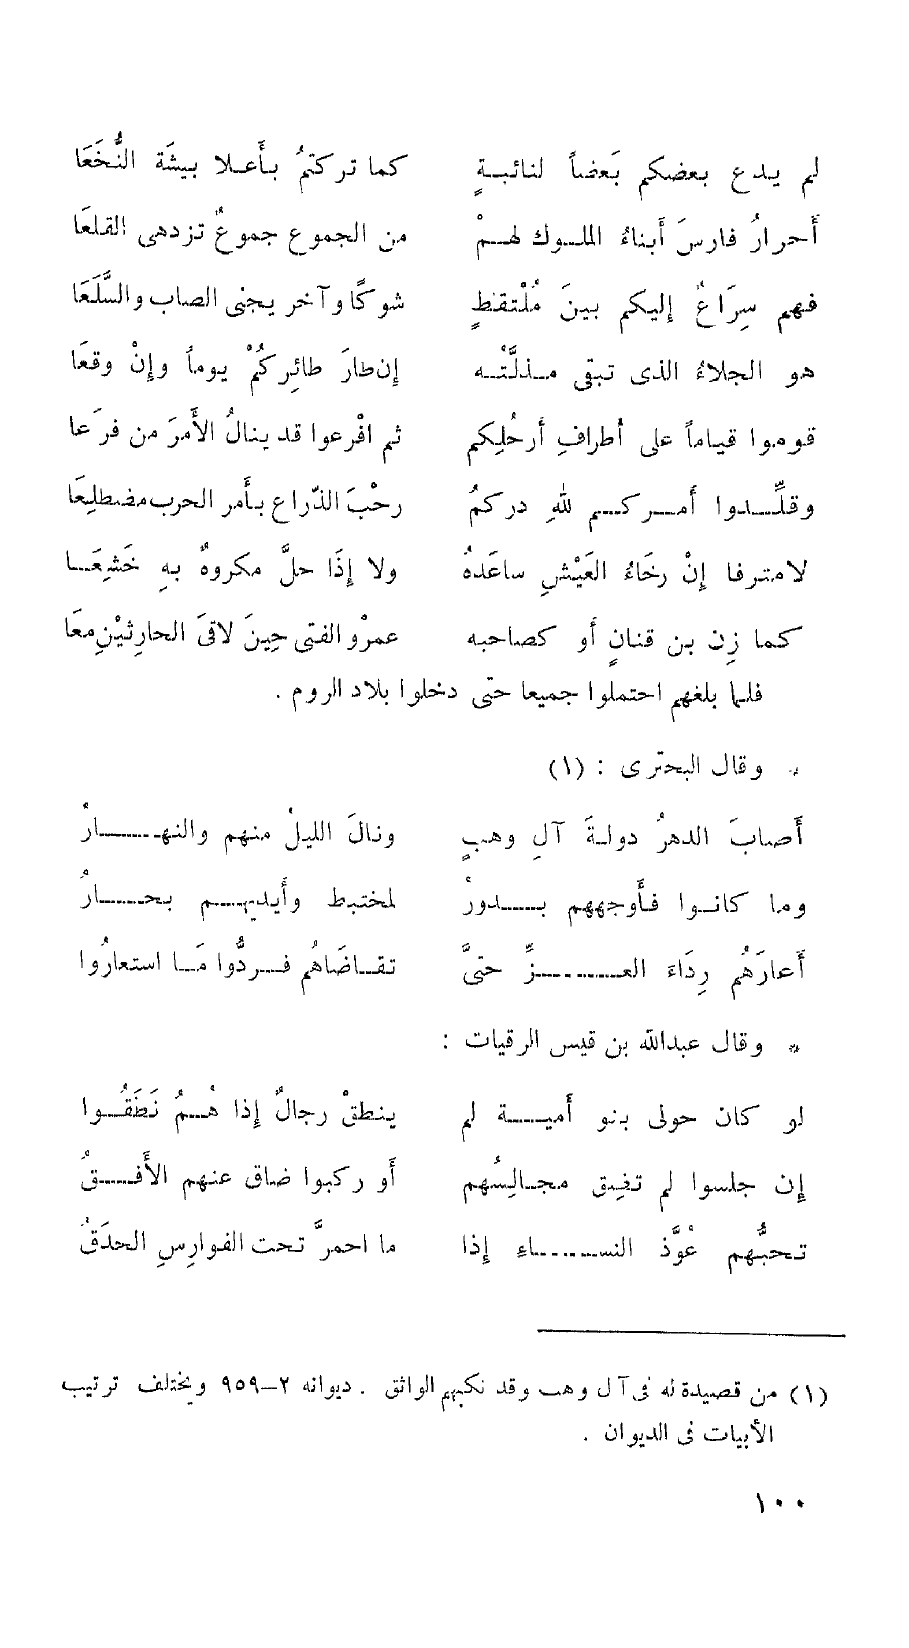 لم يدع بعضكم بَعضاً لنائبةٍ كما تركتمُ بأَعلا بيشَة النُّخَعَا
أَحرارُ فارسَ أَبناءُ الملوك لهمْ من الجموع جموعٌ تزدهى القلعَا
فهم سِرَاعٌ إليكم بينَ مُلْتقطٍ شوكًا وآخر يجنى الصاب والسَّلَعَا
هو الجلاءُ الذى تبقى مذلَّتْه إن طارَ طائِركُمْ يوماً وإنْ وقعَا
قوموا قياماً على أطرافِ أَرحُلِكم ثم افْرعوا قد ينالُ الأَمرَ من فرَعا
وقلِّدوا أَمركم للهِ دركمُ رحْبَ الذّراع بأَمر الحرب مضطلِعَا
لا مترفا إنْ رخَاءُ العَيْشِ ساعَدهُ ولا إذَا حلَّ مكروهٌ بهِ خَشِعَا
كما زِن بن قنانٍ أو كصاحبه عمرْو الفتى حِينَ لاقىَ الحارِثيْنِ معَا
فلما بلغهم احتملوا جميعا حتى دخلوا بلاد الروم .
* وقال البحترى : (١)
أَصابَ الدهرُ دولةَ آلِ وهبٍ ونالَ الليلُ منهم والنهارُ
وما كانوا فأَوجههم بدورٌ لمختبط وأَيديهم بحارُ
أَعارَهُم رِدَاءَ العزِّ حتىَّ تقاضَاهُم فردُّوا مَا استعارُوا
* وقال عبدالله بن قيس الرقيات :
لو كان حولى بنو أَمية لم ينطقْ رجالٌ إذا هُمُ نَطَقُوا
إن جلسوا لم تضِق مجالِسُهم أَو ركبوا ضاق عنهم الأَفقُ
تحبُّهم عُوَّذ النساءِ إذا ما احمرَّ تحت الفوارِسِ الحدَقُ
(١) من قصيدة له فى آل وهب وقد نكبهم الواثق . ديوانه ٢–٩٥٩ ويختلف ترتيب
الأبيات فى الديوان .
١٠٠